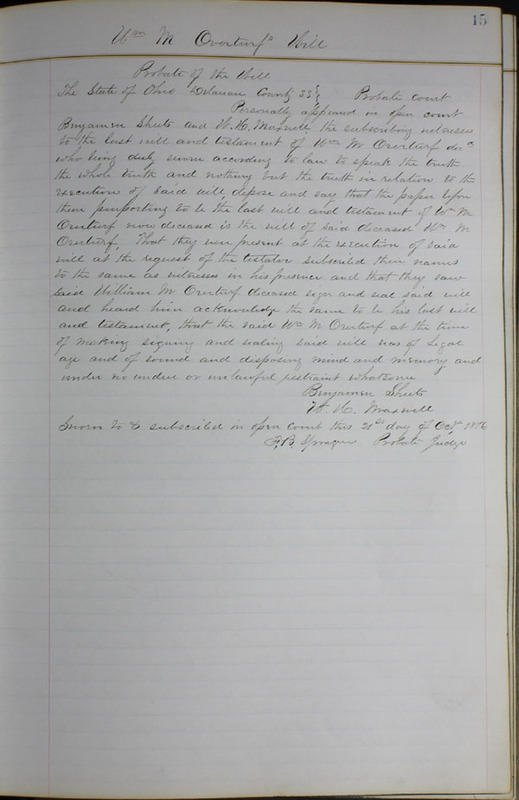 15
Wm M Overturf's Will
Probate of the Will
The State of Ohio Delaware County SS Probate Court
Personally appeared in open court
Benjamin Sheets and W. H. Maxwell the subscribing witnesses
to the last will and testament of Wm M Overturf decd
who being duly sworn according to law to speak the truth
the whole truth and nothing but the truth in relation to the
execution of said will, depose and say that the paper before
them purporting to be the last will and testament of Wm M
Overturf now deceased is the will of said deceased Wm M
Overturf, That they were present at the execution of said
will at the request of the testator subscribed their names
to the same as witnesses in his presence and that they saw
said William M Overturf deceased sign and seal said will
and heard him acknowledge the same to be his last will
and testament, that the said Wm M Overturf at the time
of making signing and sealing said will was of legal
age and of sound and disposing mind and memory and
under no undue or unlawful restraint whatsoever
Benjamin Sheets
W. H. Maxwell
Sworn to & subscribed in open court this day of Oct 1876
Probate Judge